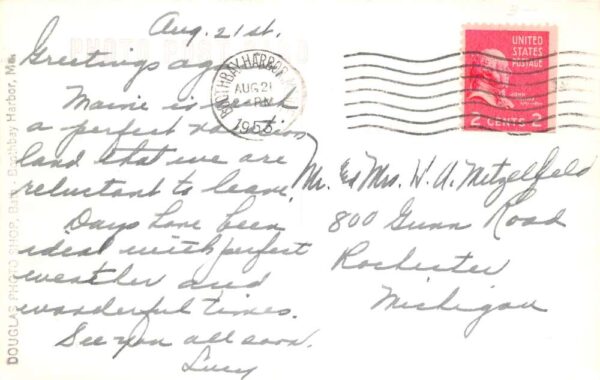 Aug. 21st.
PHOTO POST CARD
Greetings again
Maine is such
a perfect vacation
land that we are
reluctant to leave.
Days have been
ideal with perfect
weather and
wonderful times.
See you all soon.
Lucy
BOOTHBAY HARBOR
AUG 21
PM
UNITED
STATES
POSTAGE
JOHN
2 CENTS 2
Mr. & Mrs. W. A. Metzelfeld
800 Gunn Road
Rochester
Michigan
DOUGLAS PHOTO SHOP, Boothbay Harbor, Me.